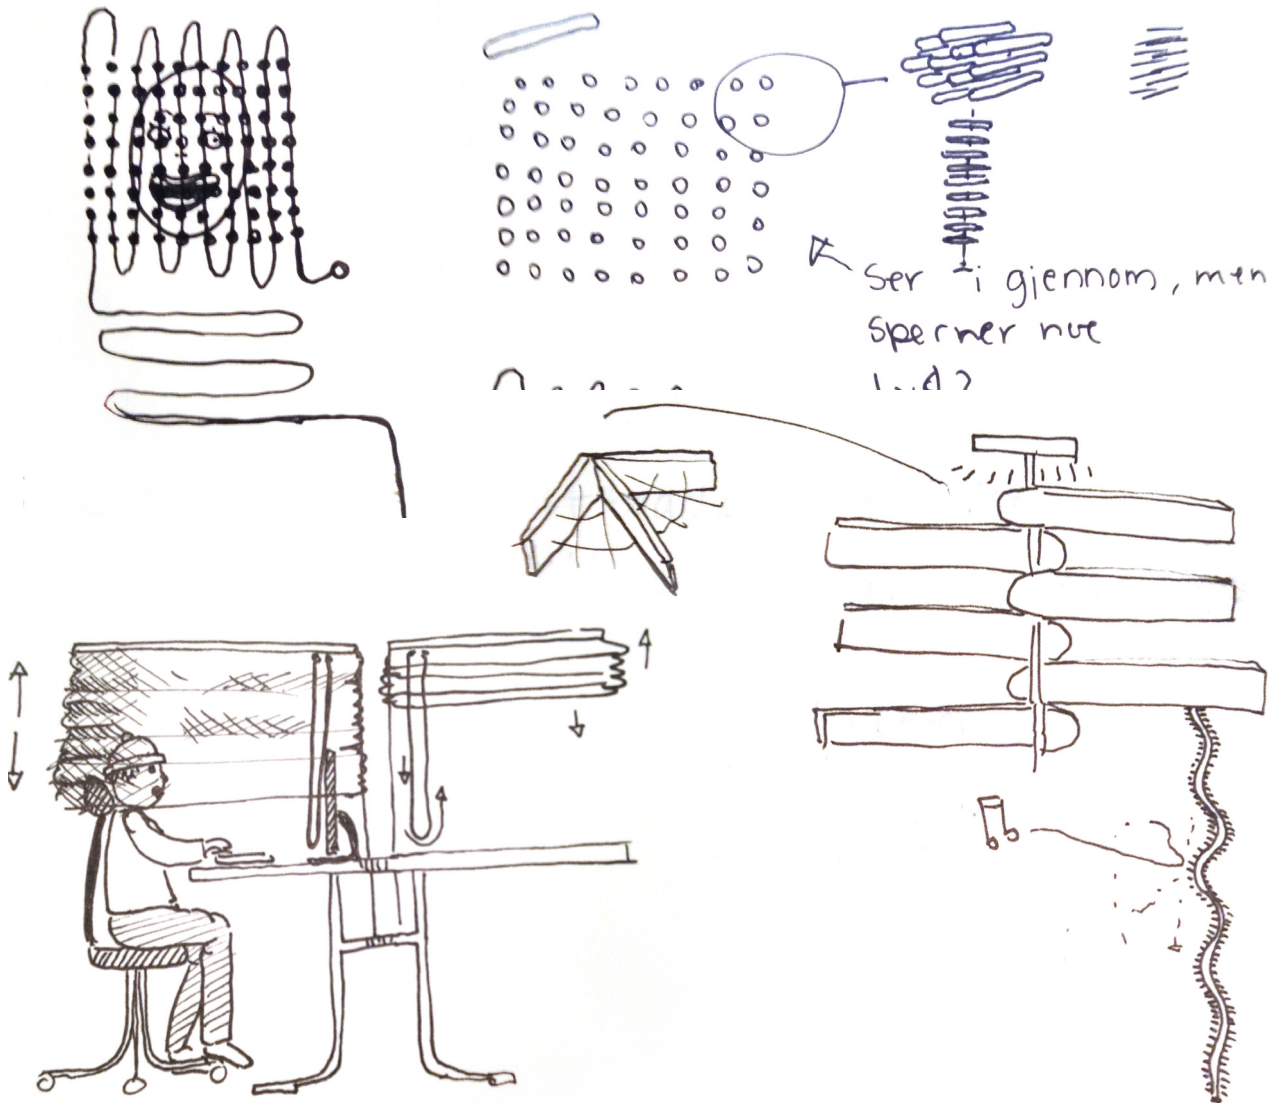 Ser i gjennom, men
sperrer noe
lyd?